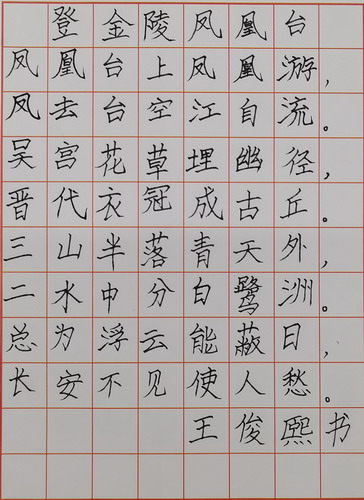 登金陵凤凰台
凤凰台上凤凰游,
凤去台空江自流。
吴宫花草埋幽径,
晋代衣冠成古丘。
三山半落青天外,
二水中分白鹭洲。
总为浮云能蔽日,
长安不见使人愁。
王俊熙书